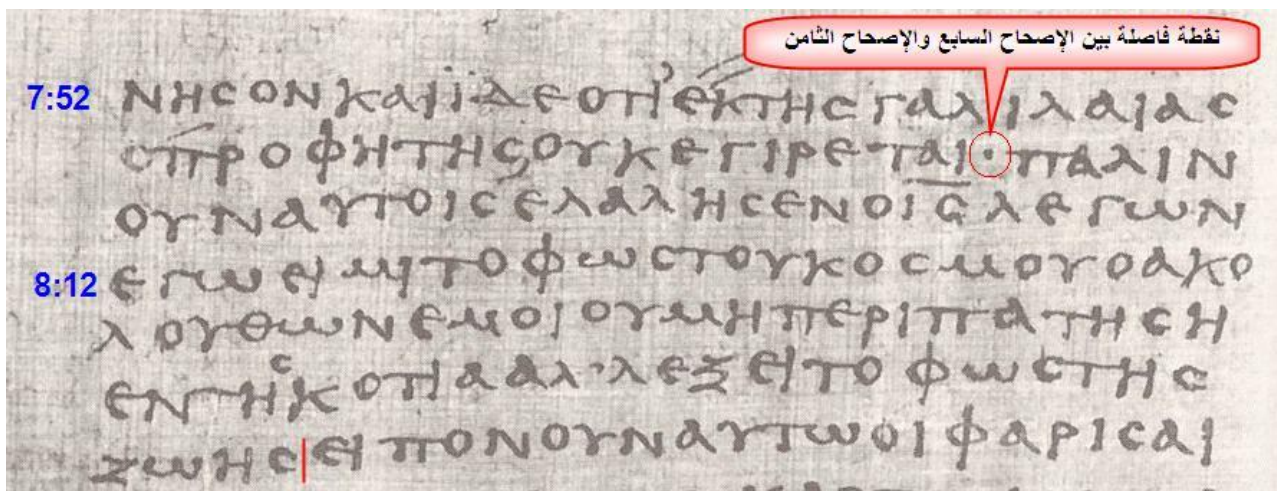 نقطة فاصلة بين الإصحاح السابع والإصحاح الثامن
7:52 ΝΗϹΟΝΚΑΙΪΔΕΟΤΙΕΚΤΗϹΓΑΛΙΛΑΙΑϹ
ϹΠΡΟΦΗΤΗϹΟΥΚΕΓΙΡΕΤΑΙ·ΠΑΛΙΝ
ΟΥΝΑΥΤΟΙϹΕΛΑΛΗϹΕΝΟΙ̅Ϲ̅ΛΕΓΩΝ
8:12 ΕΓΩΕΙΜΙΤΟΦΩϹΤΟΥΚΟϹΜΟΥΟΑΚΟ
ΛΟΥΘΩΝΕΜΟΙΟΥΜΗΠΕΡΙΠΑΤΗϹΗ
ΕΝΤΗϹΚΟΤΙΑΑΛ·ΛΕΞΕΙΤΟΦΩϹΤΗϹ
ΖΩΗϹ|ΕΙΠΟΝΟΥΝΑΥΤΩΟΙΦΑΡΙϹΑΙ